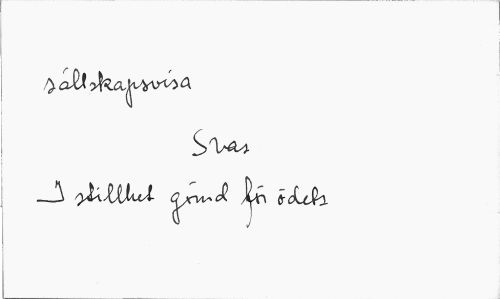 sällskapsvisa
Svar
I stillhet gömd för ödets